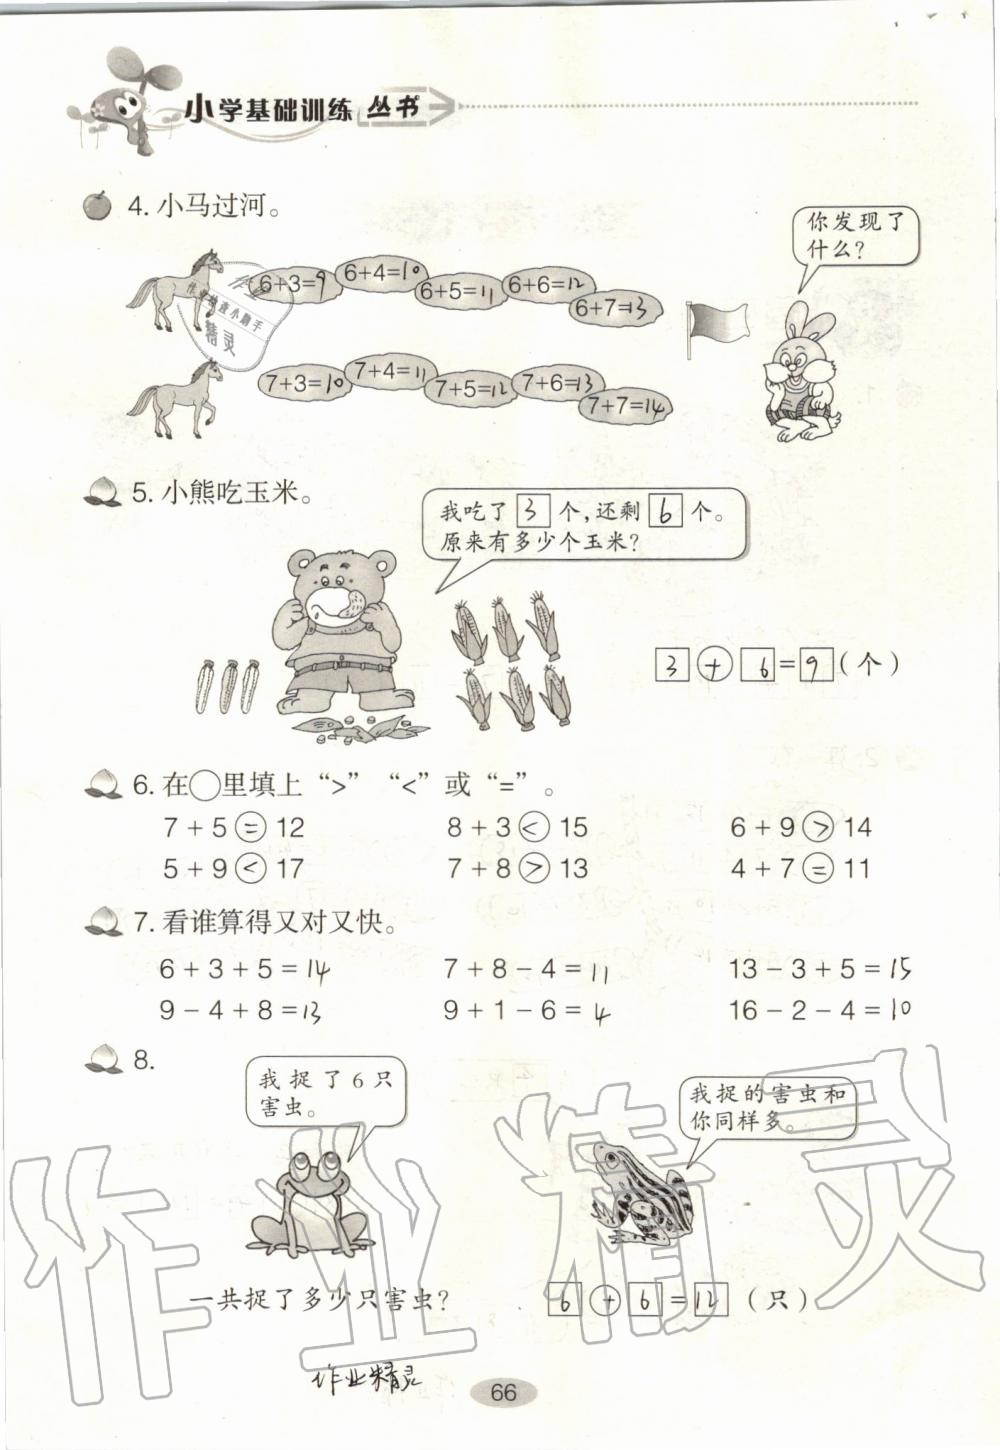 小学基础训练 丛书
4. 小马过河。
你发现了
什么?
6+3=9 6+4=10 6+5=11 6+6=12 6+7=13
作业检查小助手
精灵
7+3=10 7+4=11 7+5=12 7+6=13 7+7=14
5. 小熊吃玉米。
我吃了 3 个,还剩 6 个。
原来有多少个玉米?
3 + 6 = 9 (个)
6. 在○里填上“>”“<”或“=”。
7 + 5 = 12 8 + 3 < 15 6 + 9 > 14
5 + 9 < 17 7 + 8 > 13 4 + 7 = 11
7. 看谁算得又对又快。
6 + 3 + 5 = 14 7 + 8 - 4 = 11 13 - 3 + 5 = 15
9 - 4 + 8 = 13 9 + 1 - 6 = 4 16 - 2 - 4 = 10
8.
我捉了6只
害虫。
我捉的害虫和
你同样多。
作业精灵
一共捉了多少只害虫? 6 + 6 = 12 (只)
作业精灵
66